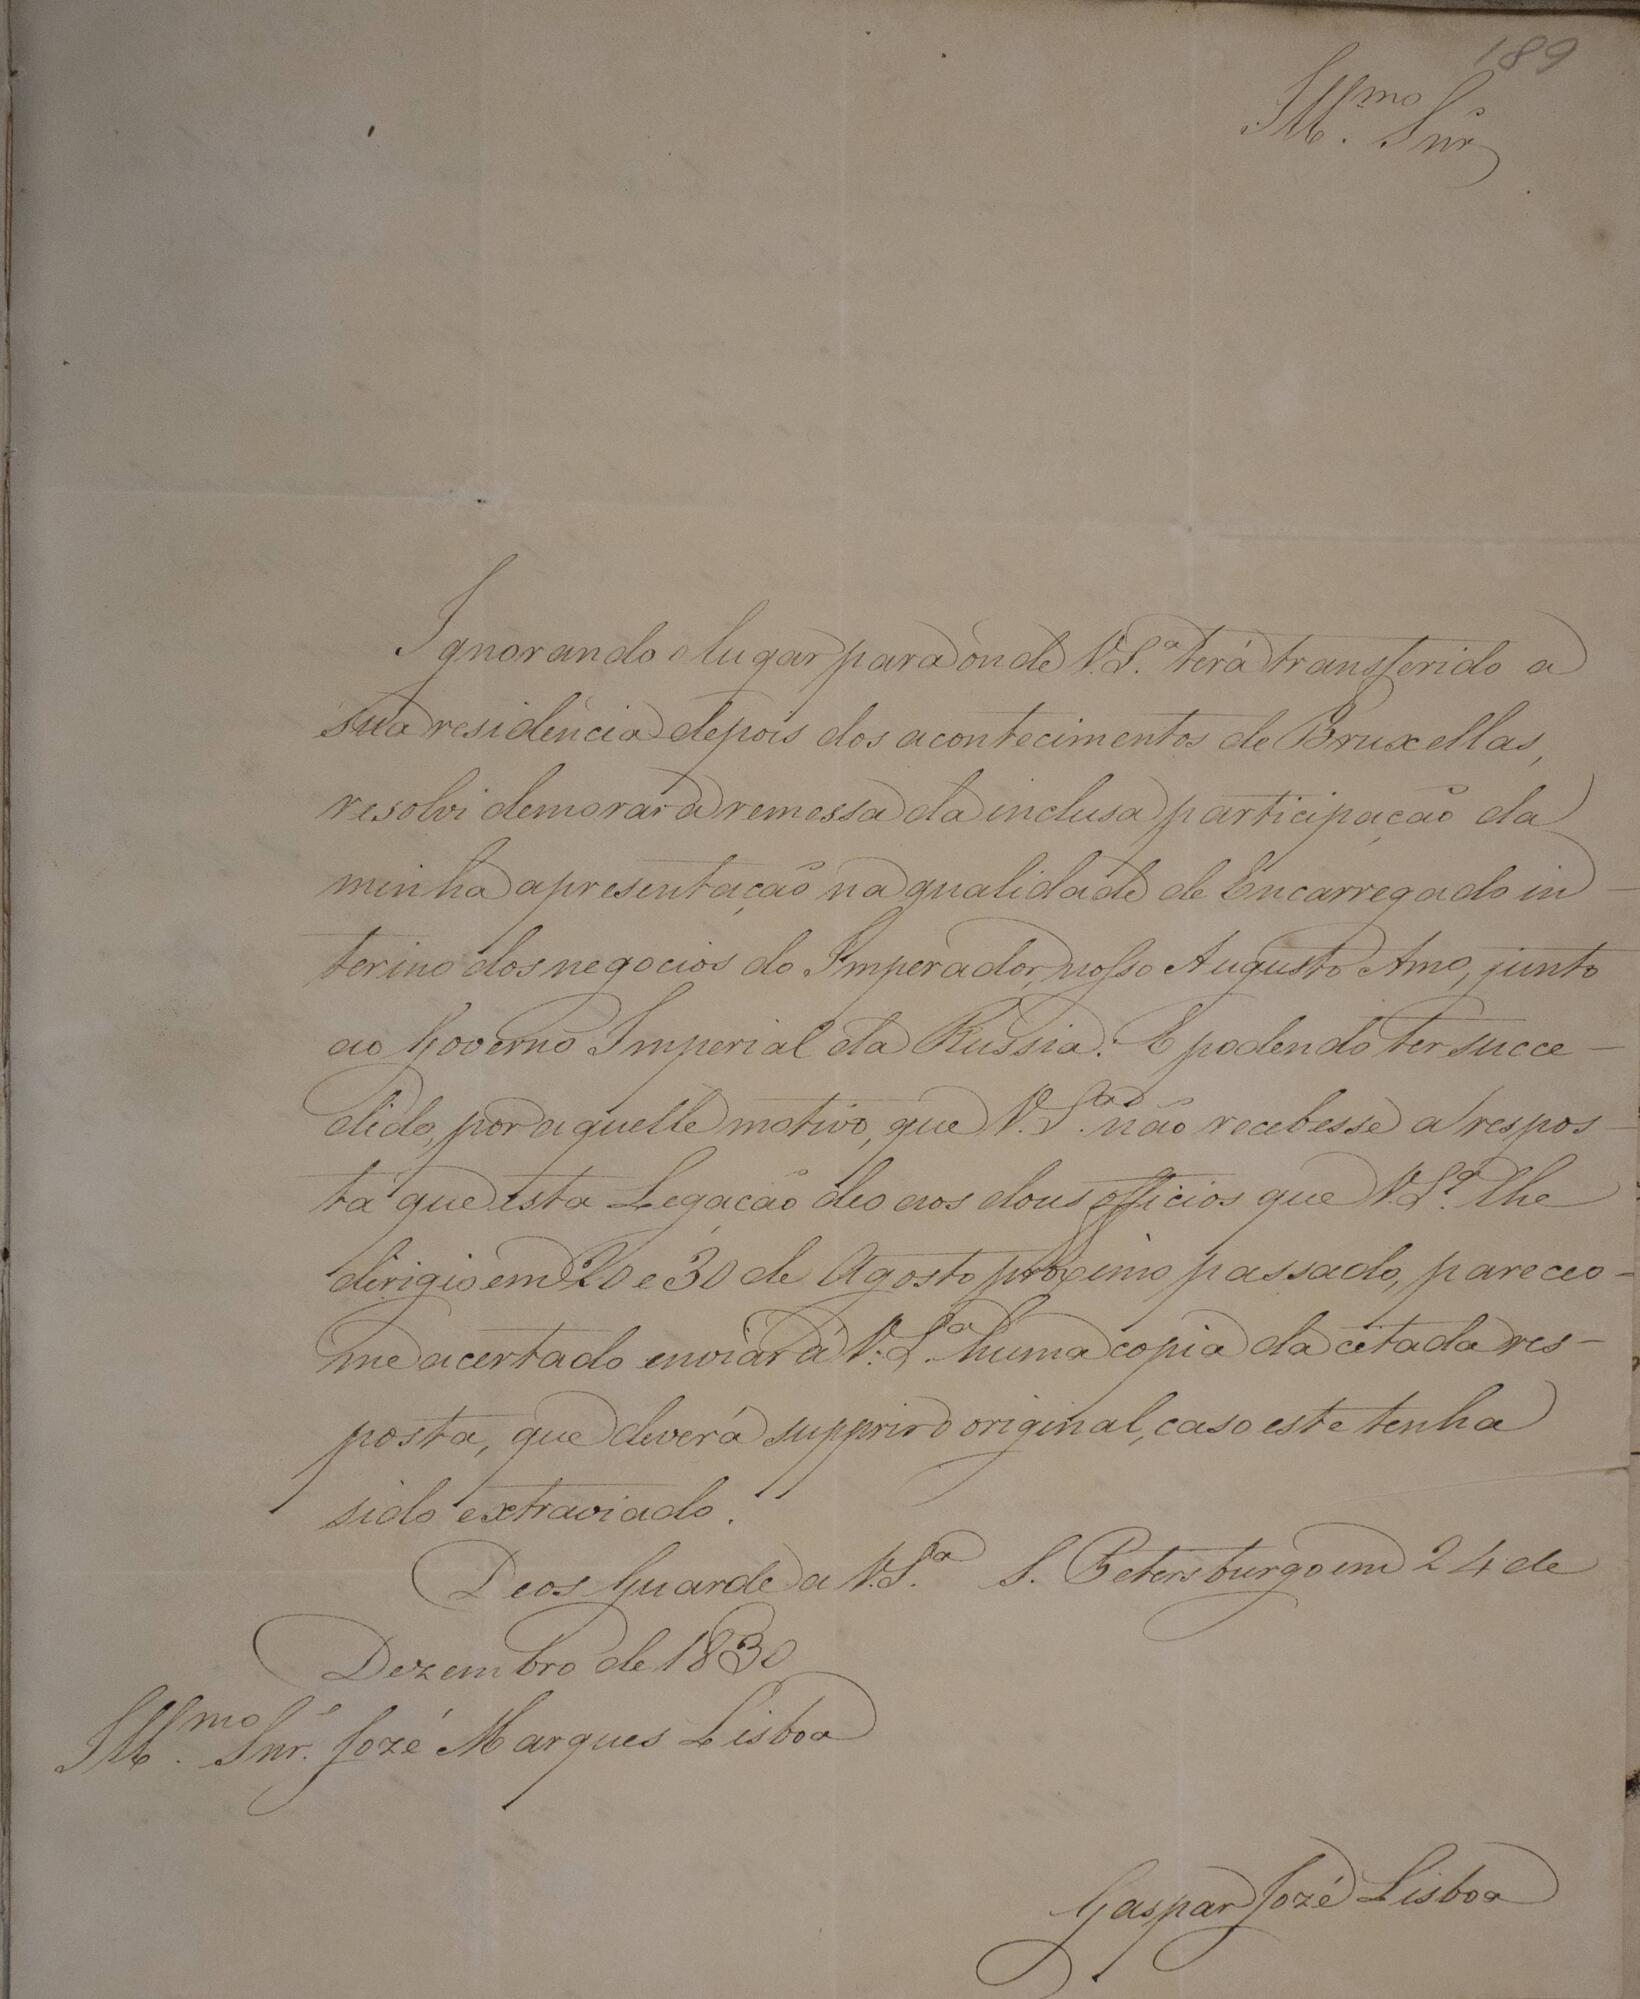 189
Ill.mo Snr
Ignorando o lugar para onde V.S.ª terá transferido a
sua residencia depois dos acontecimentos de Bruxellas,
resolvi demorar a remessa da inclusa participação da
minha apresentação na qualidade de Encarregado in-
terino dos negocios do Imperador, nosso Augusto Amo, junto
ao Governo Imperial da Russia. E podendo ter succe-
dido, por aquelle motivo, que V.S.ª não recebesse a respos-
ta que esta Legação deo aos dous officios que V.S.ª lhe
dirigio em 20 e 30 de Agosto proximo passado, pareceo-
me acertado enviar á V.S.ª huma copia da citada res-
posta, que deverá supprir o original, caso este tenha
sido extraviado.
Deos Guarde a V.S.ª S. Petersburgo em 24 de
Dezembro de 1830
Ill.mo Snr. Jozé Marques Lisboa
Gaspar Jozé Lisboa